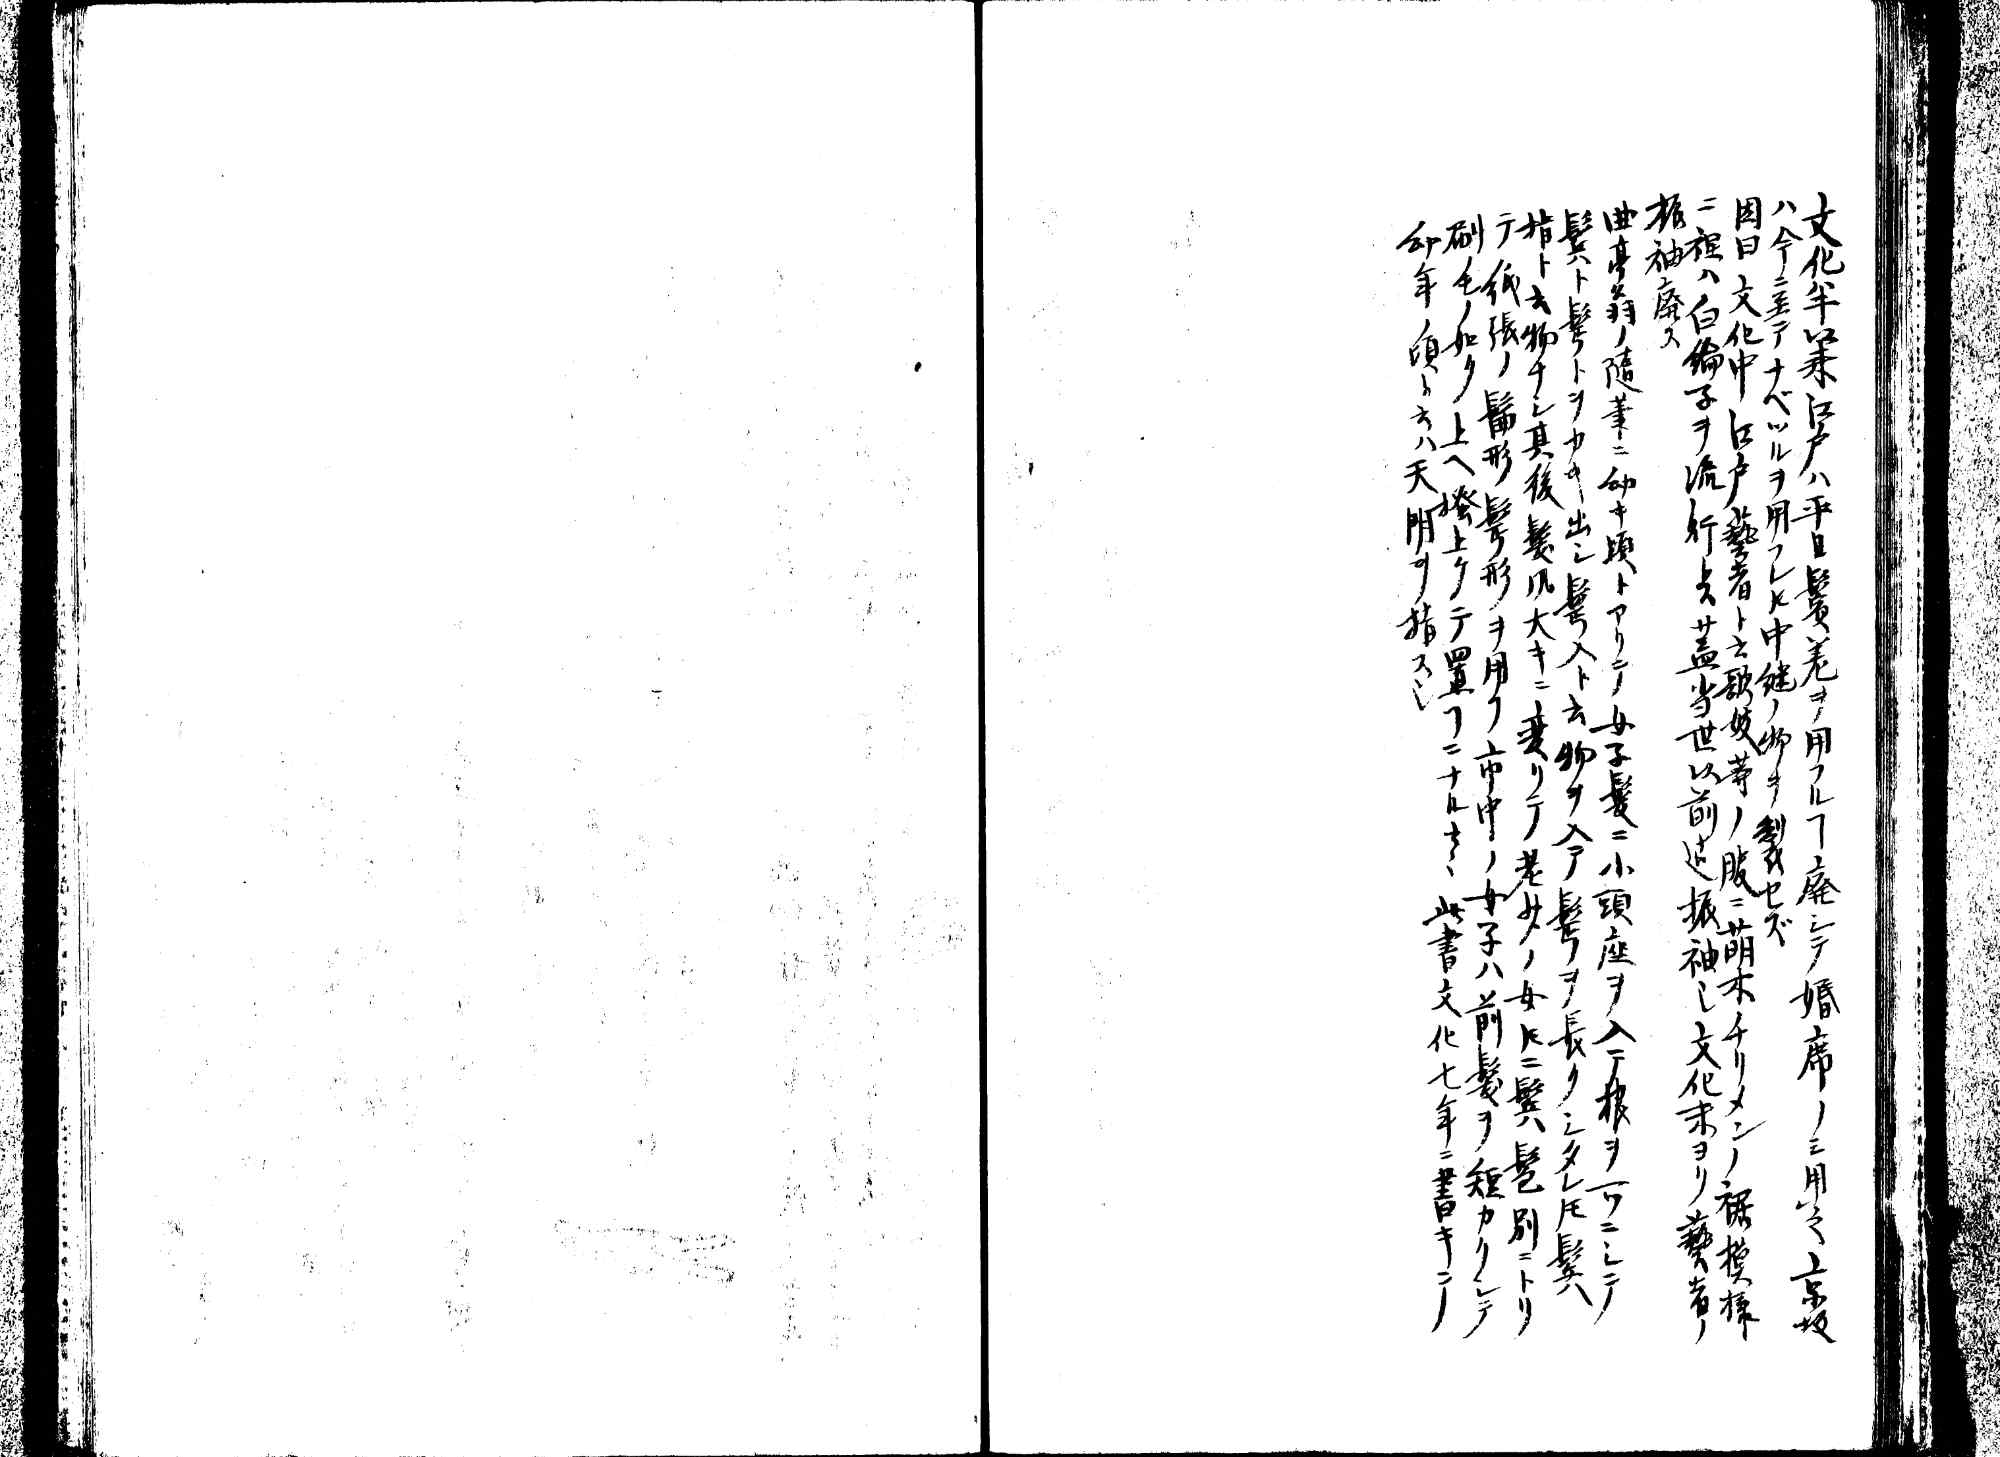 文化半以来江戸ハ平日鬢差ヲ用フルヿ廃シテ婚席ノミ用之京坂
ハ今ニ至テナベツルヲ用フレ𪜈中継ノ物ヲ製セズ
因曰文化中江戸藝者ト云歌妓等ノ服ニ萌木チリメンノ裾模様
ニ裡ハ白綸子ヲ流行トス蓋当世以前迠振袖也文化末ヨリ藝者ノ
振袖廃ス
曲亭翁ノ随筆ニ幼キ頃トアリテ女子髪ニ小頭座ヲ入テ根ヲ一ツニシテ
鬂ト髩トヲカキ出シ髩入ト云物ヲ入テ髩ヲ長クシタレ𪜈鬂
指ト云物ナシ其後髪風大キニ変リテ老少ノ女𪜈ニ鬂髱別ニトリ
テ紙張ノ髷形髩形ヲ用フ市中ノ女子ハ前髪ヲ短カクシテ
刷毛ノ如ク上ヘ撥上ケテ置ヿニナル云々此書文化七年ニ書キシ
幼年ノ頃ト云ハ天明ヲ指ス也